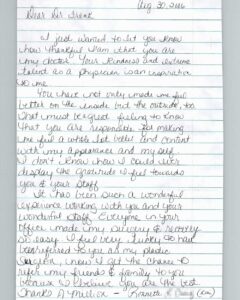 Aug 30, 2016
Dear Dr.
I just wanted to let you know
how thankful I am that you are
my doctor. Your kindness and extreme
talent as a physician is an inspiration
to me.
You have not only made me feel
better on the inside but the outside, too
What must be great feeling to know
that you are responsible for making
me feel a whole lot better and content
with my appearance and my self
I don't know how I could ever
display the gratitude I feel towards
you & your staff.
It has been such a wonderful
experience working with you and your
wonderful staff. Everyone in your
office made my surgery & recovery
so easy. I feel very lucky to have
been referred to you as my plastic
surgeon, I know I get the chance to
refer my friends & family to you
because I believe you are the best.
Thanks A Million -